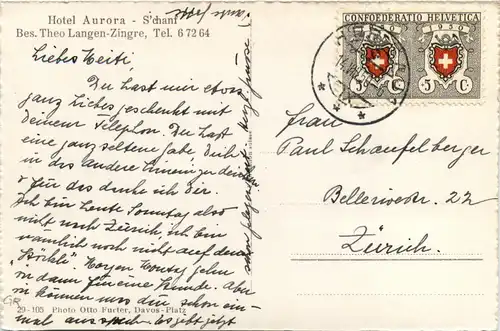 Hotel Aurora - S'chanf
Bes. Theo Langen-Zingre, Tel. 6 72 64
Liebes Heiti.
Du hast mir etwas
ganz Liebes geschenkt mit
Deinem Telephon. Du hast
eine ganz seltene Gabe Dich
in das andere
& für das danke ich Dir.
Ich bin heute Sonntag also
nicht nach Zürich, ich bin
nämlich noch nicht auf dem
Morgen Montag gehn
wir dann für eine Stunde. Aber
wir können uns den schon ein-
mal es gibt jetzt
29-105 Photo Otto Furter, Davos-Platz
CONFOEDERATIO HELVETICA
5 C. 5 C.
Frau
Paul Schaufelberger
Bellerivestr. 22
Zürich.